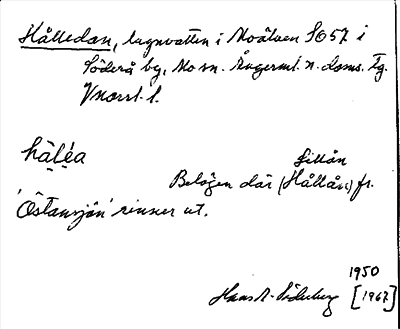 Hålledan, lugnvatten i Moälven S657 i
Söderå by, Mo sn. Ångerml. n. doms. tg.
Vnorrl. l.
hàle̱a
Lillån
Belägen där (Hållån) fr.
'Östansjön' rinner ut.
1950
Hans A. Söderberg [1967]